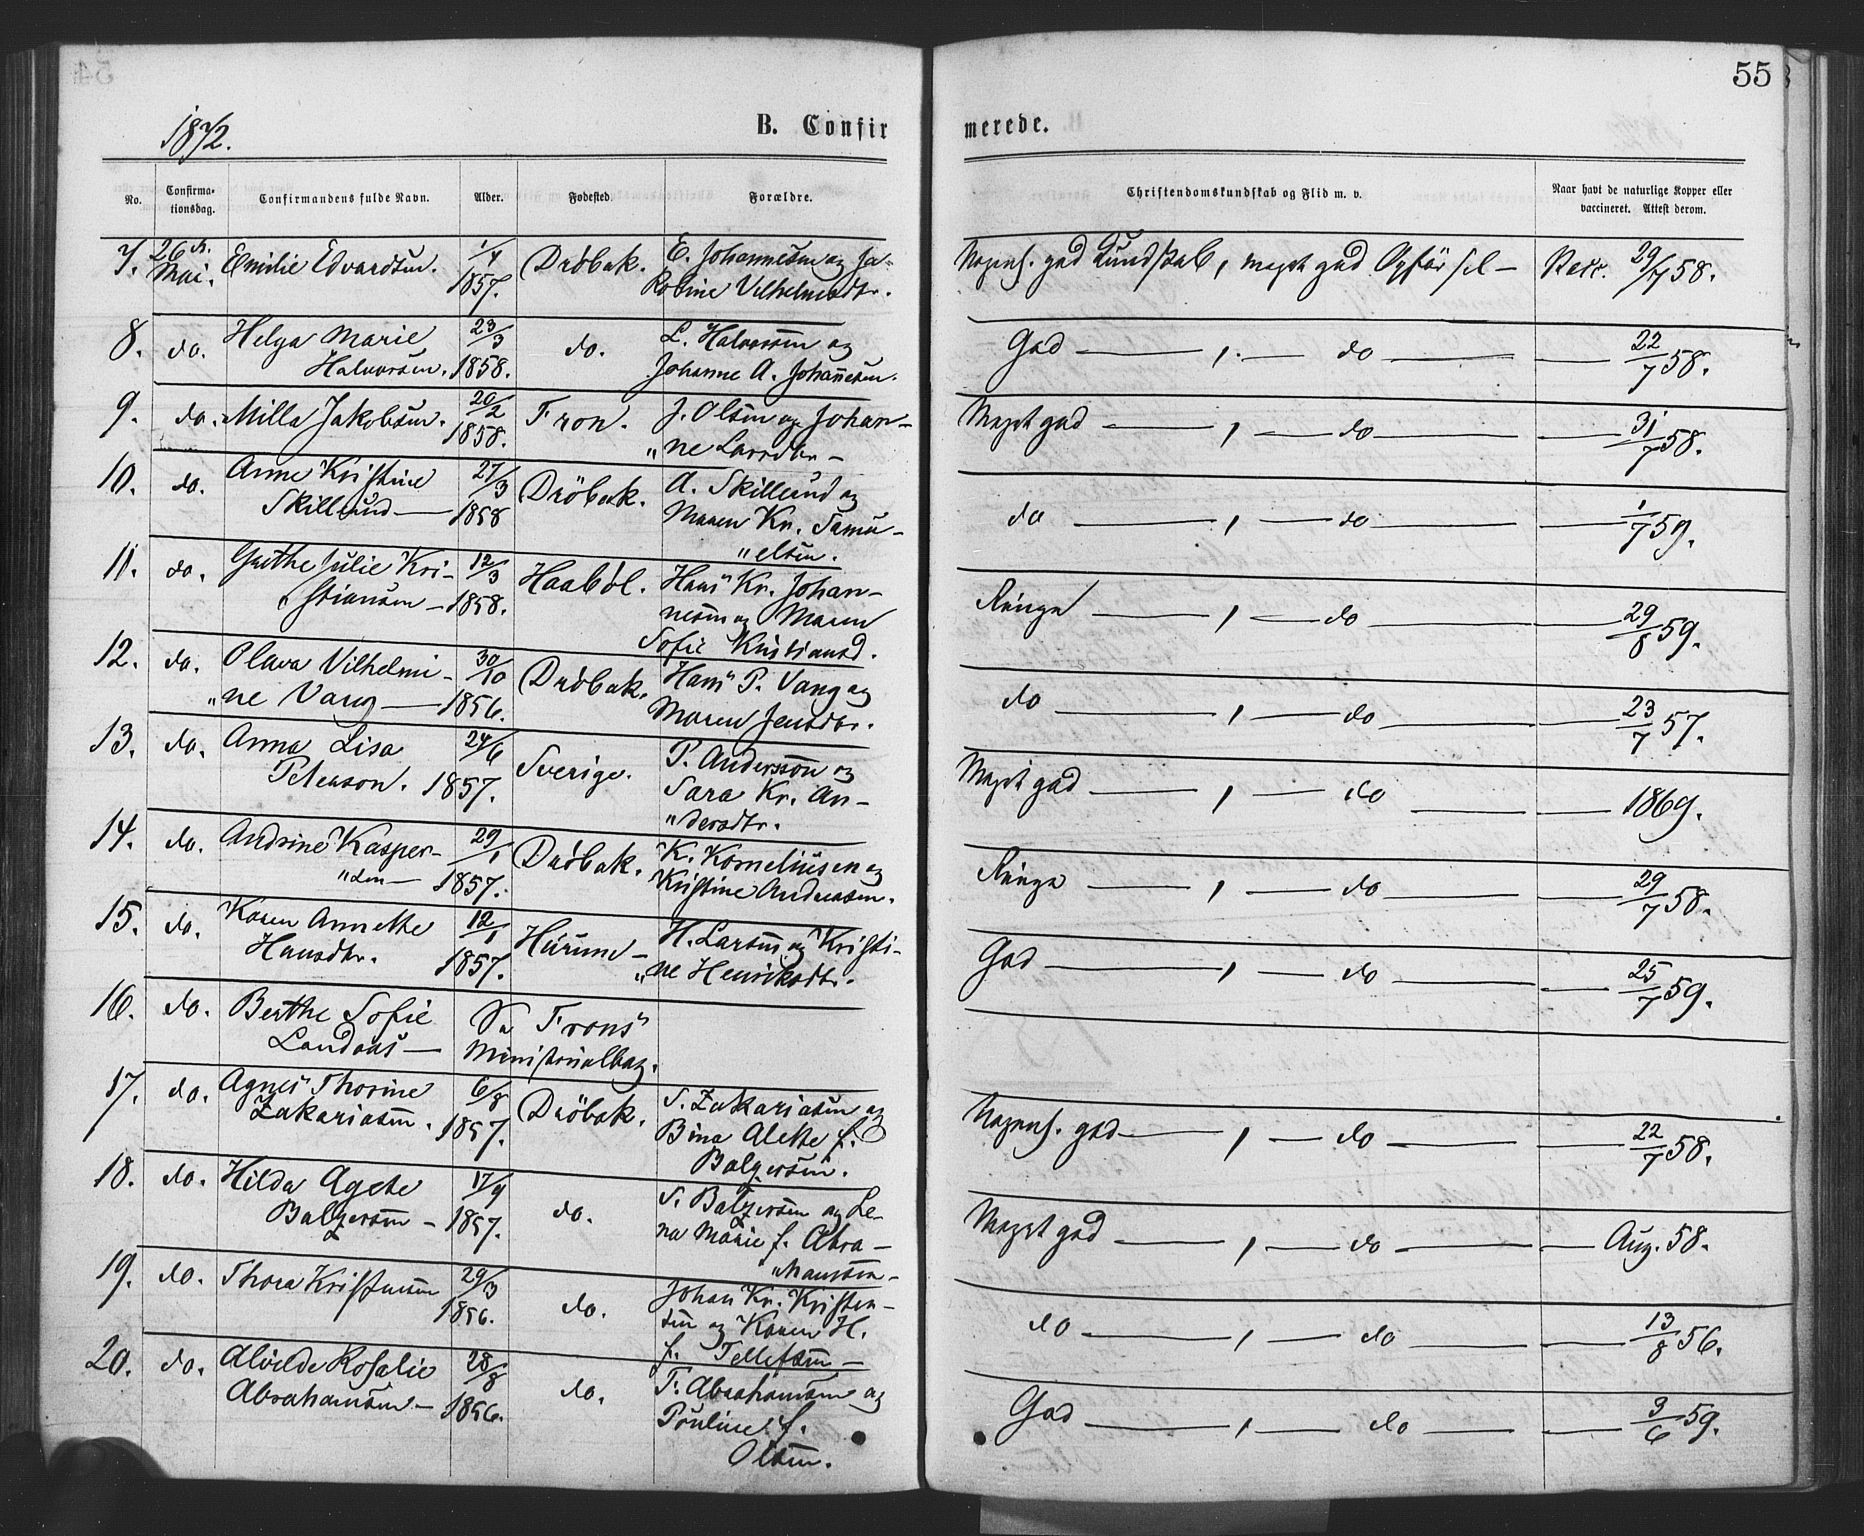 55
1872.
B. Confirmerede.
No. Confirmationsdag. Confirmandens fulde Navn. Alder. Fødested. Forældre. Christendomskundskab og Flid m. v. Naar havt de naturlige Kopper eller vaccineret. Attest derom.
7. 26de Mai. Emilie Edvardsen. 1/4 1857. Dröbak. E. Johannesen og Ja-
kobine Vilhelmsdtr. god Kundskab, meget god Opförsel — 29/7 58.
8. do. Helga Marie 23/3 do. L. Halvorsen og God — , — do — 22/7 58.
Halvorsen. 1858. Johanne A. Johannesen.
9. do. Milla Jakobsen. 20/2 1858. Fron. J. Olsen og Johan- Meget god — , — do — 31/7 58.
"ne Larsdtr —
10. do. Anne Kristine 27/3 Dröbak. A. Skillsund og do — , — do — 1/7 59.
Skillsund — 1858 Maren Kr. Samu-
"elsen.
11. do. Grethe Julie Kri- 12/3 Haaböl. Hans Kr. Johan- — , — do — 29/8 59.
stiansen — 1858. nesen og Maren
Sofie Kristiansd.
12. do. Olava Vilhelmi- 30/10 Dröbak. Hans P. Vang og do — , — do — 23/7 57.
"ne Vang — 1856. Maren Jensdtr.
13. do. Anna Lisa 24/6 Sverige. P. Andersson og Meget god — , — do — 1869.
Peterson. 1857. Sara Kr. An-
"dersdtr.
14. do. Andrine Kasper- 29/1 Dröbak. K. Korneliusen og — , — do — 29/7 58.
"sen — 1857. Kristine Andreasen.
15. do. Karen Annette 12/1 Hurum — H. Larsen og Kristi- God — , — do — 25/7 59.
Hansdtr. 1857. "ne Henriksdtr.
16. do. Berthe Sofie Se Frons
Landaas — Ministerialbog.
17. do. Agnes Thorine 6/8 Dröbak. S. Zakariasen og god — , — do — 22/7 58.
Zakariasen. 1857. Bina Alette f.
Balzersen.
18. do. Hilda Agete 17/9 do. S. Balzersen og Le- Meget god — , — do — Aug. 58.
Balzersen — 1857. na Marie f. Abra-
"hamsen —
19. do. Thora Kristensen 29/3 1856. do. Johan Kr. Kristen- do — , — do — 13/8 56.
sen og Karen H.
f. Tellefsen —
20. do. Alvilde Rosalie 28/8 do. T. Abrahamsen og God — , — do — 3/6 59.
Abrahamsen — 1856. Pouline f.
Olsen.